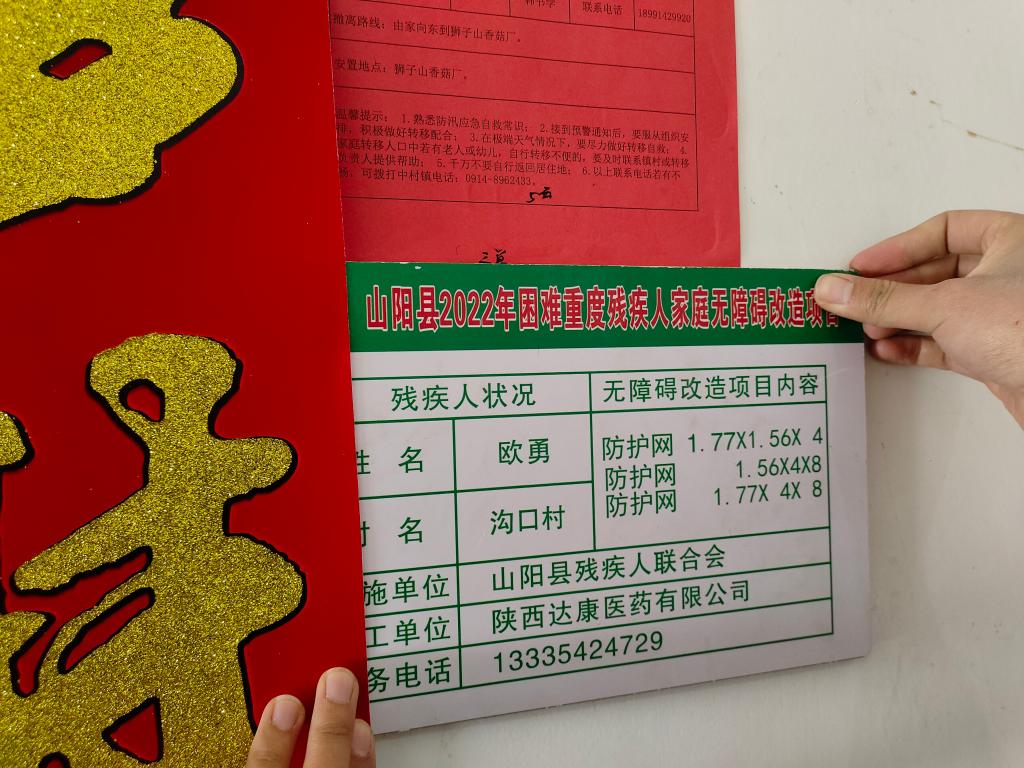 韩书学 联系电话 18991429920
撤离路线：由家向东到狮子山香菇厂。
安置地点：狮子山香菇厂。
温馨提示： 1.熟悉防汛应急自救常识； 2.接到预警通知后，要服从组织安
排，积极做好转移配合； 3.在极端天气情况下，要尽力做好转移自救； 4.
家庭转移人口中若有老人或幼儿，自行转移不便的，要及时联系镇村或转移
负责人提供帮助； 5.千万不要自行返回居住地； 6.以上联系电话若有不
畅，可拨打中村镇电话：0914-8962433。
山阳县2022年困难重度残疾人家庭无障碍改造项目
残疾人状况 无障碍改造项目内容
姓 名 欧勇
防护网 1.77X1.56X 4
防护网 1.56X4X8
防护网 1.77X 4X 8
村 名 沟口村
施单位 山阳县残疾人联合会
工单位 陕西达康医药有限公司
务电话 13335424729